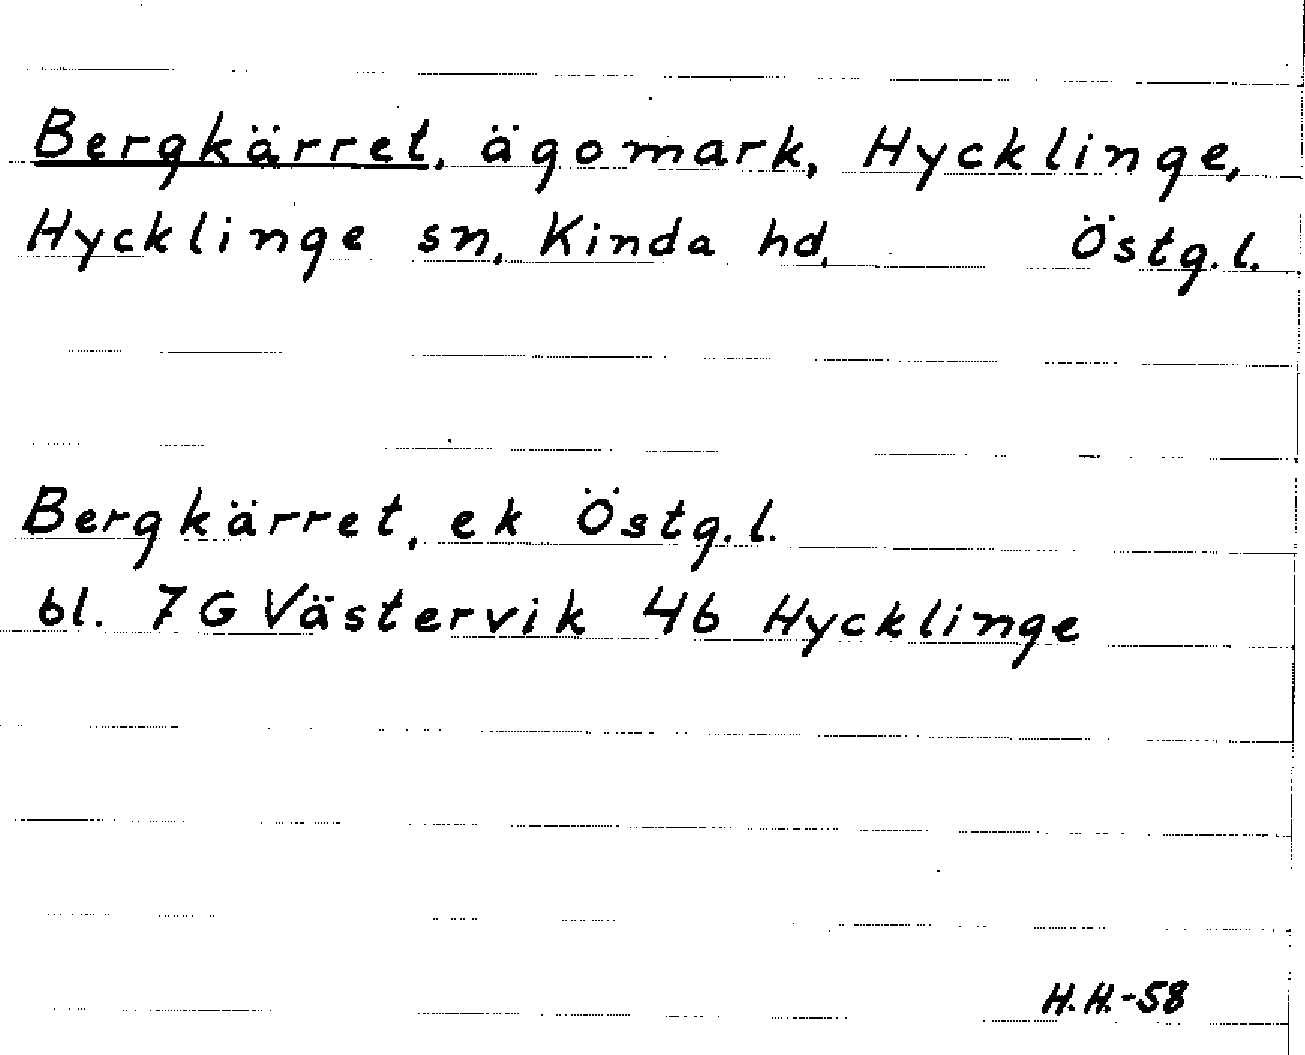 Bergkärret, ägomark, Hycklinge,
Hycklinge sn, Kinda hd, Östg.l.
Bergkärret, ek Östg.l.
bl. 7G Västervik 4b Hycklinge
H.H.-58